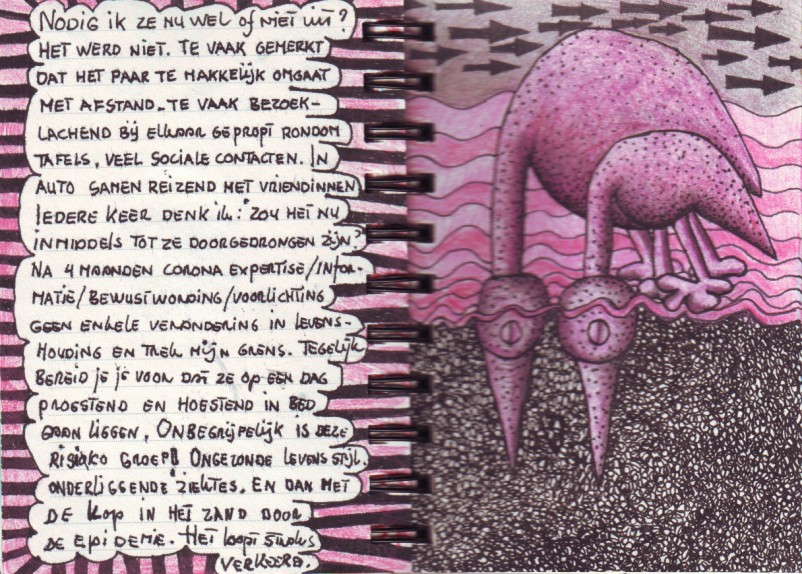 NODIG IK ZE NU WEL OF NIET UIT?
HET WERD NIET. TE VAAK GEMERKT
DAT HET PAAR TE MAKKELIJK OMGAAT
MET AFSTAND. TE VAAK BEZOEK-
LACHEND BIJ ELKAAR GEPROPT RONDOM
TAFELS, VEEL SOCIALE CONTACTEN. IN
AUTO SAMEN REIZEND MET VRIENDINNEN
IEDERE KEER DENK IK: ZOU HET NU
INMIDDELS TOT ZE DOORGEDRONGEN ZIJN?
NA 4 MAANDEN CORONA EXPERTISE/INFOR-
MATIE/BEWUSTWORDING/VOORLICHTING
GEEN ENKELE VERANDERING IN LEVENS-
HOUDING EN TREK MIJN GRENS. TEGELIJK
BEREID JE JE VOOR DAT ZE OP EEN DAG
PROESTEND EN HOESTEND IN BED
GAAN LIGGEN. ONBEGRIJPELIJK IS DEZE
RISIKO GROEP! ONGEZONDE LEVENSSTIJL.
ONDERLIGGENDE ZIEKTES. EN DAN MET
DE KOP IN HET ZAND DOOR
DE EPIDEMIE. HET LOOPT STRAKS
VERKEERD.